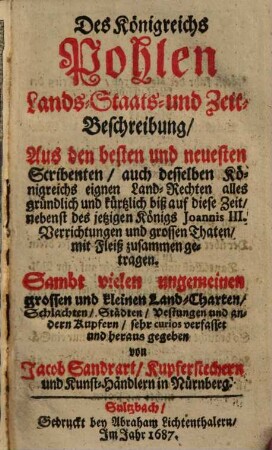 Des Königreichs
Pohlen
Lands-Staats-und Zeit-
Beschreibung/
Aus den besten und neuesten
Scribenten/ auch desselben Kö-
nigreichs eignen Land-Rechten alles
gründlich und kürtzlich biß auf diese Zeit/
nebenst des jetzigen Königs Joannis III.
Verrichtungen und grossen Thaten/
mit Fleiß zusammen ge-
tragen.
Sambt vielen ungemeinen
grossen und kleinen Land-Charten/
Schlachten/ Städten/ Vestungen und an-
dern Kupfern/ sehr curios verfasset
und heraus gegeben
von
Jacob Sandrart/ Kupferstechern
und Kunst-Händlern in Nürnberg.
Sultzbach/
Gedruckt bey Abraham Lichtenthalern/
Im Jahr 1687.